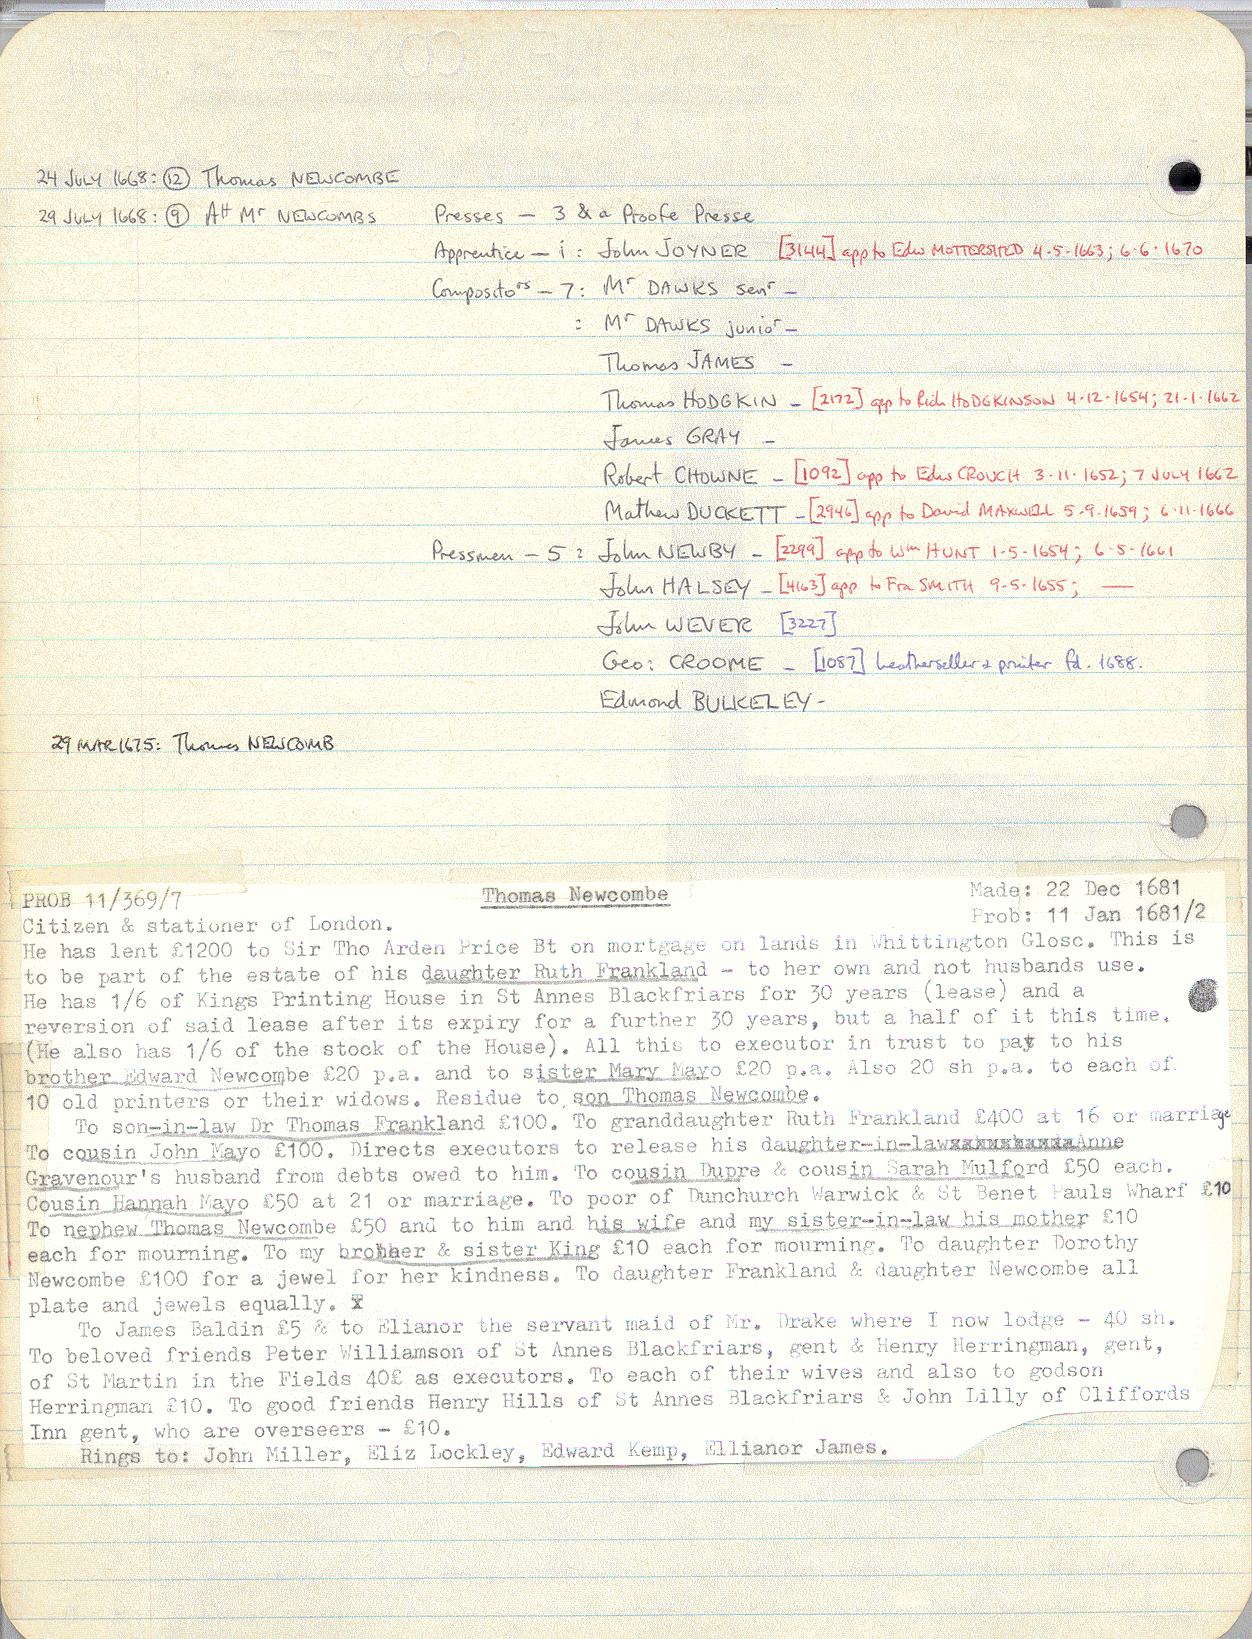 24 JULY 1668: (12) Thomas NEWCOMBE
29 JULY 1668: (9) Att Mr NEWCOMBS Presses — 3 & a Proofe Presse
Apprentice — i : John JOYNER [3144] app to Edw MOTTERSHED 4·5·1663; 6·6·1670
Compositors — 7: Mr DAWKS senr —
: Mr DAWKS junior —
Thomas JAMES —
Thomas HODGKIN — [2172] app to Rich HODGKINSON 4·12·1654; 21·1·1662
James GRAY —
Robert CHOWNE — [1092] app to Edw CROUCH 3·11·1652; 7 JULY 1662
Mathew DUCKETT — [2946] app to David MAXWELL 5·9·1659; 6·11·1666
Pressmen — 5 : John NEWBY — [2299] app to Wm HUNT 1·5·1654; 6·5·1661
John HALSEY — [4163] app to Fra SMITH 9·5·1655; —
John WEVER [3227]
Geo: CROOME — [1087] leatherseller & printer fd. 1688.
Edmond BULKELEY —
29 MAR 1675: Thomas NEWCOMB
PROB 11/369/7 Thomas Newcombe Made: 22 Dec 1681
Prob: 11 Jan 1681/2
Citizen & stationer of London.
He has lent £1200 to Sir Tho Arden Price Bt on mortgage on lands in Whittington Glosc. This is
to be part of the estate of his daughter Ruth Frankland - to her own and not husbands use.
He has 1/6 of Kings Printing House in St Annes Blackfriars for 30 years (lease) and a
reversion of said lease after its expiry for a further 30 years, but a half of it this time.
(He also has 1/6 of the stock of the House). All this to executor in trust to pay to his
brother Edward Newcombe £20 p.a. and to sister Mary Mayo £20 p.a. Also 20 sh p.a. to each of
10 old printers or their widows. Residue to son Thomas Newcombe.
To son-in-law Dr Thomas Frankland £100. To granddaughter Ruth Frankland £400 at 16 or marriage
To cousin John Mayo £100. Directs executors to release his daughter-in-law Anne
Gravenour's husband from debts owed to him. To cousin Dupre & cousin Sarah Mulford £50 each.
Cousin Hannah Mayo £50 at 21 or marriage. To poor of Dunchurch Warwick & St Benet Pauls Wharf £10
To nephew Thomas Newcombe £50 and to him and his wife and my sister-in-law his mother £10
each for mourning. To my brother & sister King £10 each for mourning. To daughter Dorothy
Newcombe £100 for a jewel for her kindness. To daughter Frankland & daughter Newcombe all
plate and jewels equally.
To James Baldin £5 & to Elianor the servant maid of Mr. Drake where I now lodge - 40 sh.
To beloved friends Peter Williamson of St Annes Blackfriars, gent & Henry Herringman, gent,
of St Martin in the Fields 40£ as executors. To each of their wives and also to godson
Herringman £10. To good friends Henry Hills of St Annes Blackfriars & John Lilly of Cliffords
Inn gent, who are overseers - £10.
Rings to: John Miller, Eliz Lockley, Edward Kemp, Ellianor James.